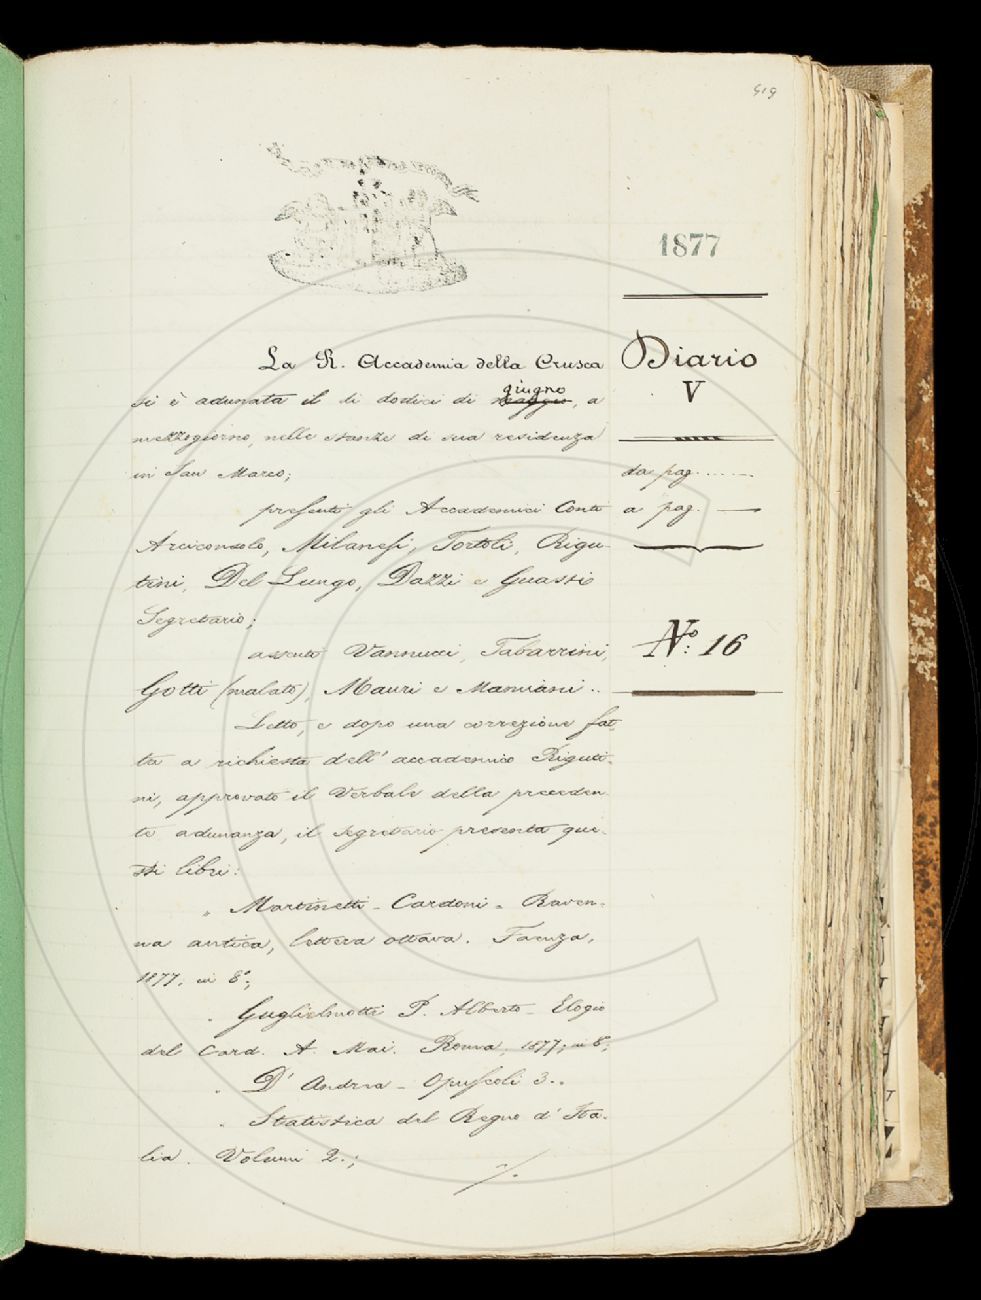 519
1877
Diario
V
da pag. ......
a pag. —
Nº: 16
La R. Accademia della Crusca
si è adunata il dì dodici di maggio giugno, a
mezzogiorno, nelle stanze di sua residenza
in San Marco;
presenti gli Accademici Conti
Arciconsolo, Milanesi, Tortoli, Rigu-
tini, Del Lungo, Dazzi e Guasti
Segretario;
assenti Vannucci, Tabarrini,
Gotti (malato), Mauri e Mamiani..
Letto, e dopo una correzione fat-
ta a richiesta dell'accademico Riguti-
ni, approvato il Verbale della preceden-
te adunanza, il Segretario presenta que-
sti libri:
„ Martinetti - Cardoni - Raven-
na antica, lettera ottava. Faenza,
1877, in 8º;
„ Guglielmotti P. Alberto - Elogio
del Card. A. Mai. Roma, 1877, in 8º;
„ D'Andrea - Opuscoli 3..
„ Statistica del Regno d'Ita-
lia. Volumi 2.;
./.